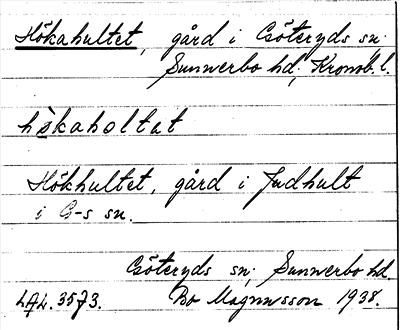 Hökahultet, gård i Göteryds sn;
Sunnerbo hd; Kronob. l.
hökaholtat
Hökhultet, gård i Judhult
i G-s sn.
Göteryds sn; Sunnerbo hd.
LAL. 3573. Bo Magnusson 1938.